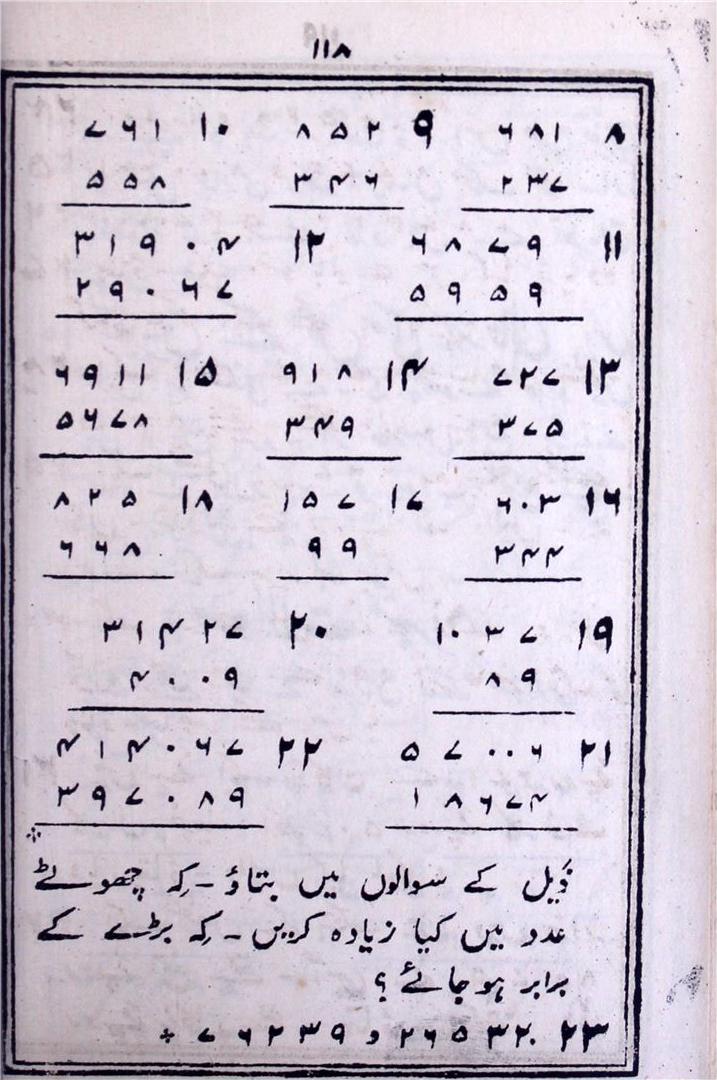 ۱۱۸
۸ ۶۸۱ ۹ ۸۵۲ ۱۰ ۷۶۱
۲۳۷ ۳۴۶ ۵۵۸
۱۱ ۶۸۷۹ ۱۲ ۳۱۹۰۴
۵۹۵۹ ۲۹۰۶۷
۱۳ ۷۲۷ ۱۴ ۹۱۸ ۱۵ ۶۹۱۱
۳۷۵ ۳۴۹ ۵۶۷۸
۱۶ ۶۰۳ ۱۷ ۱۵۷ ۱۸ ۸۲۵
۳۴۴ ۹۹ ۶۶۸
۱۹ ۱۰۳۷ ۲۰ ۳۱۴۲۷
۸۹ ۴۰۰۹
۲۱ ۵۷۰۰۶ ۲۲ ۴۱۴۰۶۷
۱۸۶۷۴ ۳۹۷۰۸۹
ذیل کے سوالوں میں بتاؤ ۔ کہ چھوٹے
عدد میں کیا زیادہ کریں ۔ کہ بڑے کے
برابر ہو جائے ؟
۲۳ ۲۶۵۳۲۰ و ۷۶۲۳۹ ÷